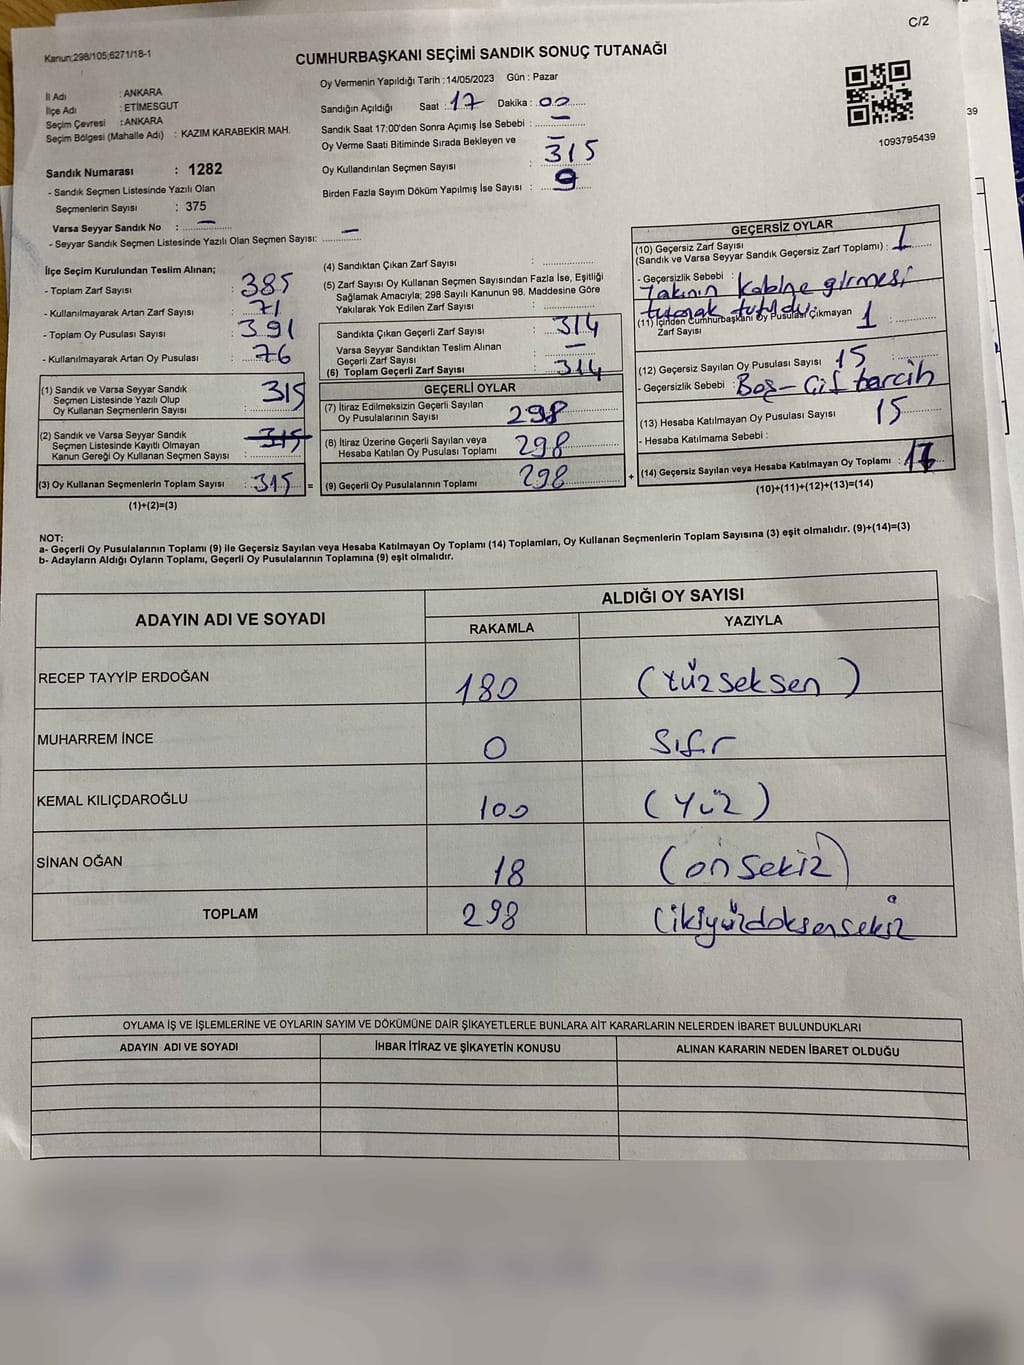 C/2
Kanun;298/105;6271/18-1
CUMHURBAŞKANI SEÇİMİ SANDIK SONUÇ TUTANAĞI
İl Adı : ANKARA
İlçe Adı : ETİMESGUT
Seçim Çevresi : ANKARA
Seçim Bölgesi (Mahalle Adı) : KAZIM KARABEKİR MAH.
Sandık Numarası : 1282
- Sandık Seçmen Listesinde Yazılı Olan
Seçmenlerin Sayısı : 375
Varsa Seyyar Sandık No : —
- Seyyar Sandık Seçmen Listesinde Yazılı Olan Seçmen Sayısı: —
Oy Vermenin Yapıldığı Tarih :14/05/2023 Gün : Pazar
Sandığın Açıldığı Saat : 17 Dakika : 00
Sandık Saat 17:00'den Sonra Açımış İse Sebebi : —
Oy Verme Saati Bitiminde Sırada Bekleyen ve —
Oy Kullandırılan Seçmen Sayısı : 315
Birden Fazla Sayım Döküm Yapılmış İse Sayısı : 9
1093795439
39
İlçe Seçim Kurulundan Teslim Alınan;
- Toplam Zarf Sayısı : 385
- Kullanılmayarak Artan Zarf Sayısı : 71
- Toplam Oy Pusulası Sayısı : 391
- Kullanılmayarak Artan Oy Pusulası : 76
(1) Sandık ve Varsa Seyyar Sandık
Seçmen Listesinde Yazılı Olup
Oy Kullanan Seçmenlerin Sayısı : 315
(2) Sandık ve Varsa Seyyar Sandık
Seçmen Listesinde Kayıtlı Olmayan
Kanun Gereği Oy Kullanan Seçmen Sayısı : 315
(3) Oy Kullanan Seçmenlerin Toplam Sayısı : 315 =
(1)+(2)=(3)
(4) Sandıktan Çıkan Zarf Sayısı :
(5) Zarf Sayısı Oy Kullanan Seçmen Sayısından Fazla İse, Eşitliği
Sağlamak Amacıyla; 298 Sayılı Kanunun 98. Maddesine Göre
Yakılarak Yok Edilen Zarf Sayısı :
Sandıkta Çıkan Geçerli Zarf Sayısı : 314
Varsa Seyyar Sandıktan Teslim Alınan
Geçerli Zarf Sayısı : —
(6) Toplam Geçerli Zarf Sayısı : 314
GEÇERLİ OYLAR
(7) İtiraz Edilmeksizin Geçerli Sayılan
Oy Pusulalarının Sayısı : 298
(8) İtiraz Üzerine Geçerli Sayılan veya
Hesaba Katılan Oy Pusulası Toplamı : 298
(9) Geçerli Oy Pusulalarının Toplamı : 298 +
GEÇERSİZ OYLAR
(10) Geçersiz Zarf Sayısı
(Sandık ve Varsa Seyyar Sandık Geçersiz Zarf Toplamı) : 1
- Geçersizlik Sebebi :
kabine girmesi
tutanak tutuldu
(11) İçinden Cumhurbaşkanı Oy Pusulası Çıkmayan
Zarf Sayısı : 1
(12) Geçersiz Sayılan Oy Pusulası Sayısı : 15
- Geçersizlik Sebebi : Boş - Çif tercih
(13) Hesaba Katılmayan Oy Pusulası Sayısı : 15
- Hesaba Katılmama Sebebi :
(14) Geçersiz Sayılan veya Hesaba Katılmayan Oy Toplamı :
(10)+(11)+(12)+(13)=(14)
NOT:
a- Geçerli Oy Pusulalarının Toplamı (9) ile Geçersiz Sayılan veya Hesaba Katılmayan Oy Toplamı (14) Toplamları, Oy Kullanan Seçmenlerin Toplam Sayısına (3) eşit olmalıdır. (9)+(14)=(3)
b- Adayların Aldığı Oyların Toplamı, Geçerli Oy Pusulalarının Toplamına (9) eşit olmalıdır.
ADAYIN ADI VE SOYADI
ALDIĞI OY SAYISI
RAKAMLA YAZIYLA
RECEP TAYYİP ERDOĞAN 180 (Yüzseksen)
MUHARREM İNCE 0 Sıfır
KEMAL KILIÇDAROĞLU 100 (Yüz)
SİNAN OĞAN 18 (onsekiz)
TOPLAM 298 (ikiyüzdoksensekiz
OYLAMA İŞ VE İŞLEMLERİNE VE OYLARIN SAYIM VE DÖKÜMÜNE DAİR ŞİKAYETLERLE BUNLARA AİT KARARLARIN NELERDEN İBARET BULUNDUKLARI
ADAYIN ADI VE SOYADI İHBAR İTİRAZ VE ŞİKAYETİN KONUSU ALINAN KARARIN NEDEN İBARET OLDUĞU